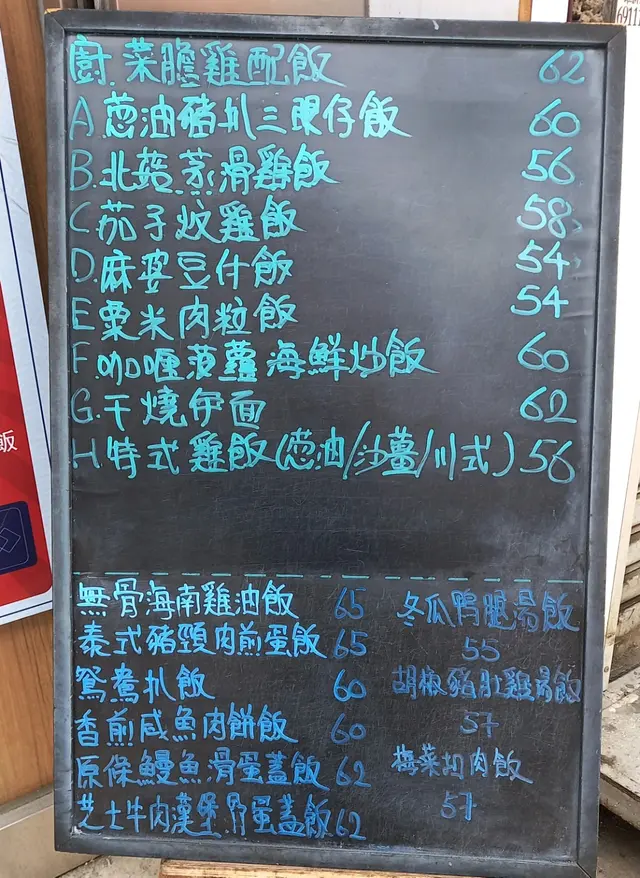 6911
飯
廚.菜膽雞配飯 62
A.葱油豬扒三腿仔飯 60
B.北菇蒸滑雞飯 56
C.茄子炆雞飯 58
D.麻婆豆付飯 54
E粟米肉粒飯 54
F咖喱菠蘿海鮮炒飯 60
G.干燒伊面 62
H特式雞飯(葱油/沙薑/川式) 56
無骨海南雞油飯 65
泰式豬頸肉煎蛋飯 65
鴛鴦扒飯 60
香煎咸魚肉餅飯 60
原條鰻魚滑蛋蓋飯 62
芝士牛肉漢堡滑蛋蓋飯 62
冬瓜鴨腿湯飯
55
胡椒豬肚雞湯飯
57
梅菜扣肉飯
57